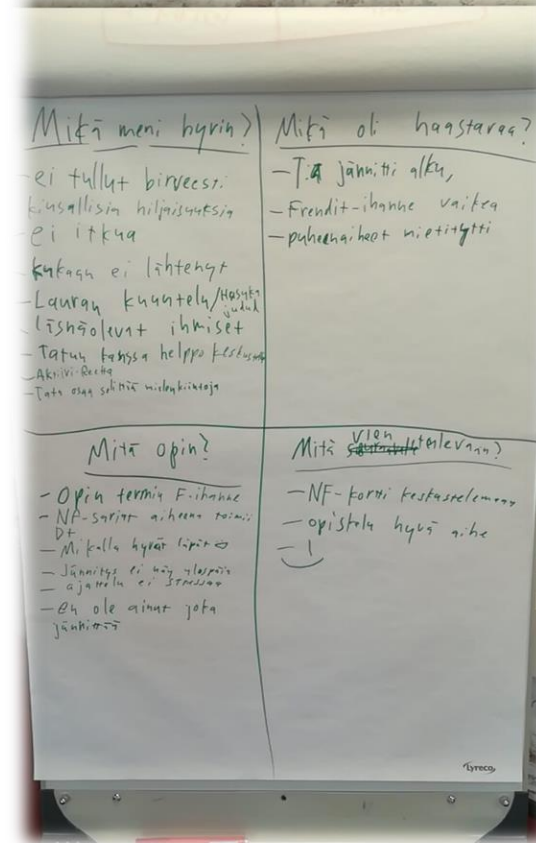 Mikä meni hyvin?
- ei tullut hirveesti
kiusallisia hiljaisuuksia
- ei itkua
- kukaan ei lähtenyt
- Lauran kuuntelu/
- läsnäolevat ihmiset
- Tatun kanssa helppo keskustella
- Aktiivi-Reetta
- Tatu osaa selittää mielenkiintoja
Mikä oli haastavaa?
- jännitti alku,
- Frendit-ihanne vaikea
- puheenaiheet mietitytti
Mitä opin?
- Opin termin F-ihanne
- NF-sarjat aiheena toimii
D+
- Mikalla hyvät läpät
- Jännitys ei näy ulospäin
- ajattelu ei stressaa
- en ole ainut jota
jännittää
Mitä vien tulevaan?
- NF-kortti keskusteluun
- opiskelu hyvä aihe
Lyreco